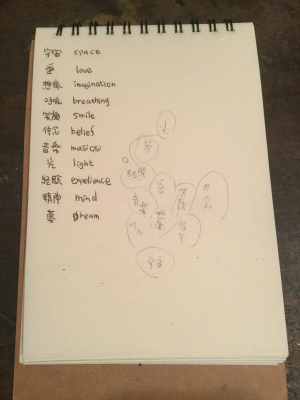 宇宙 space
愛 love
想像 imagination
呼吸 breathing
笑顔 smile
信念 belief
音楽 musics
光 light
経験 expelience
精神 mind
夢 dream
光
夢
経験
愛
音楽
想像
宇宙